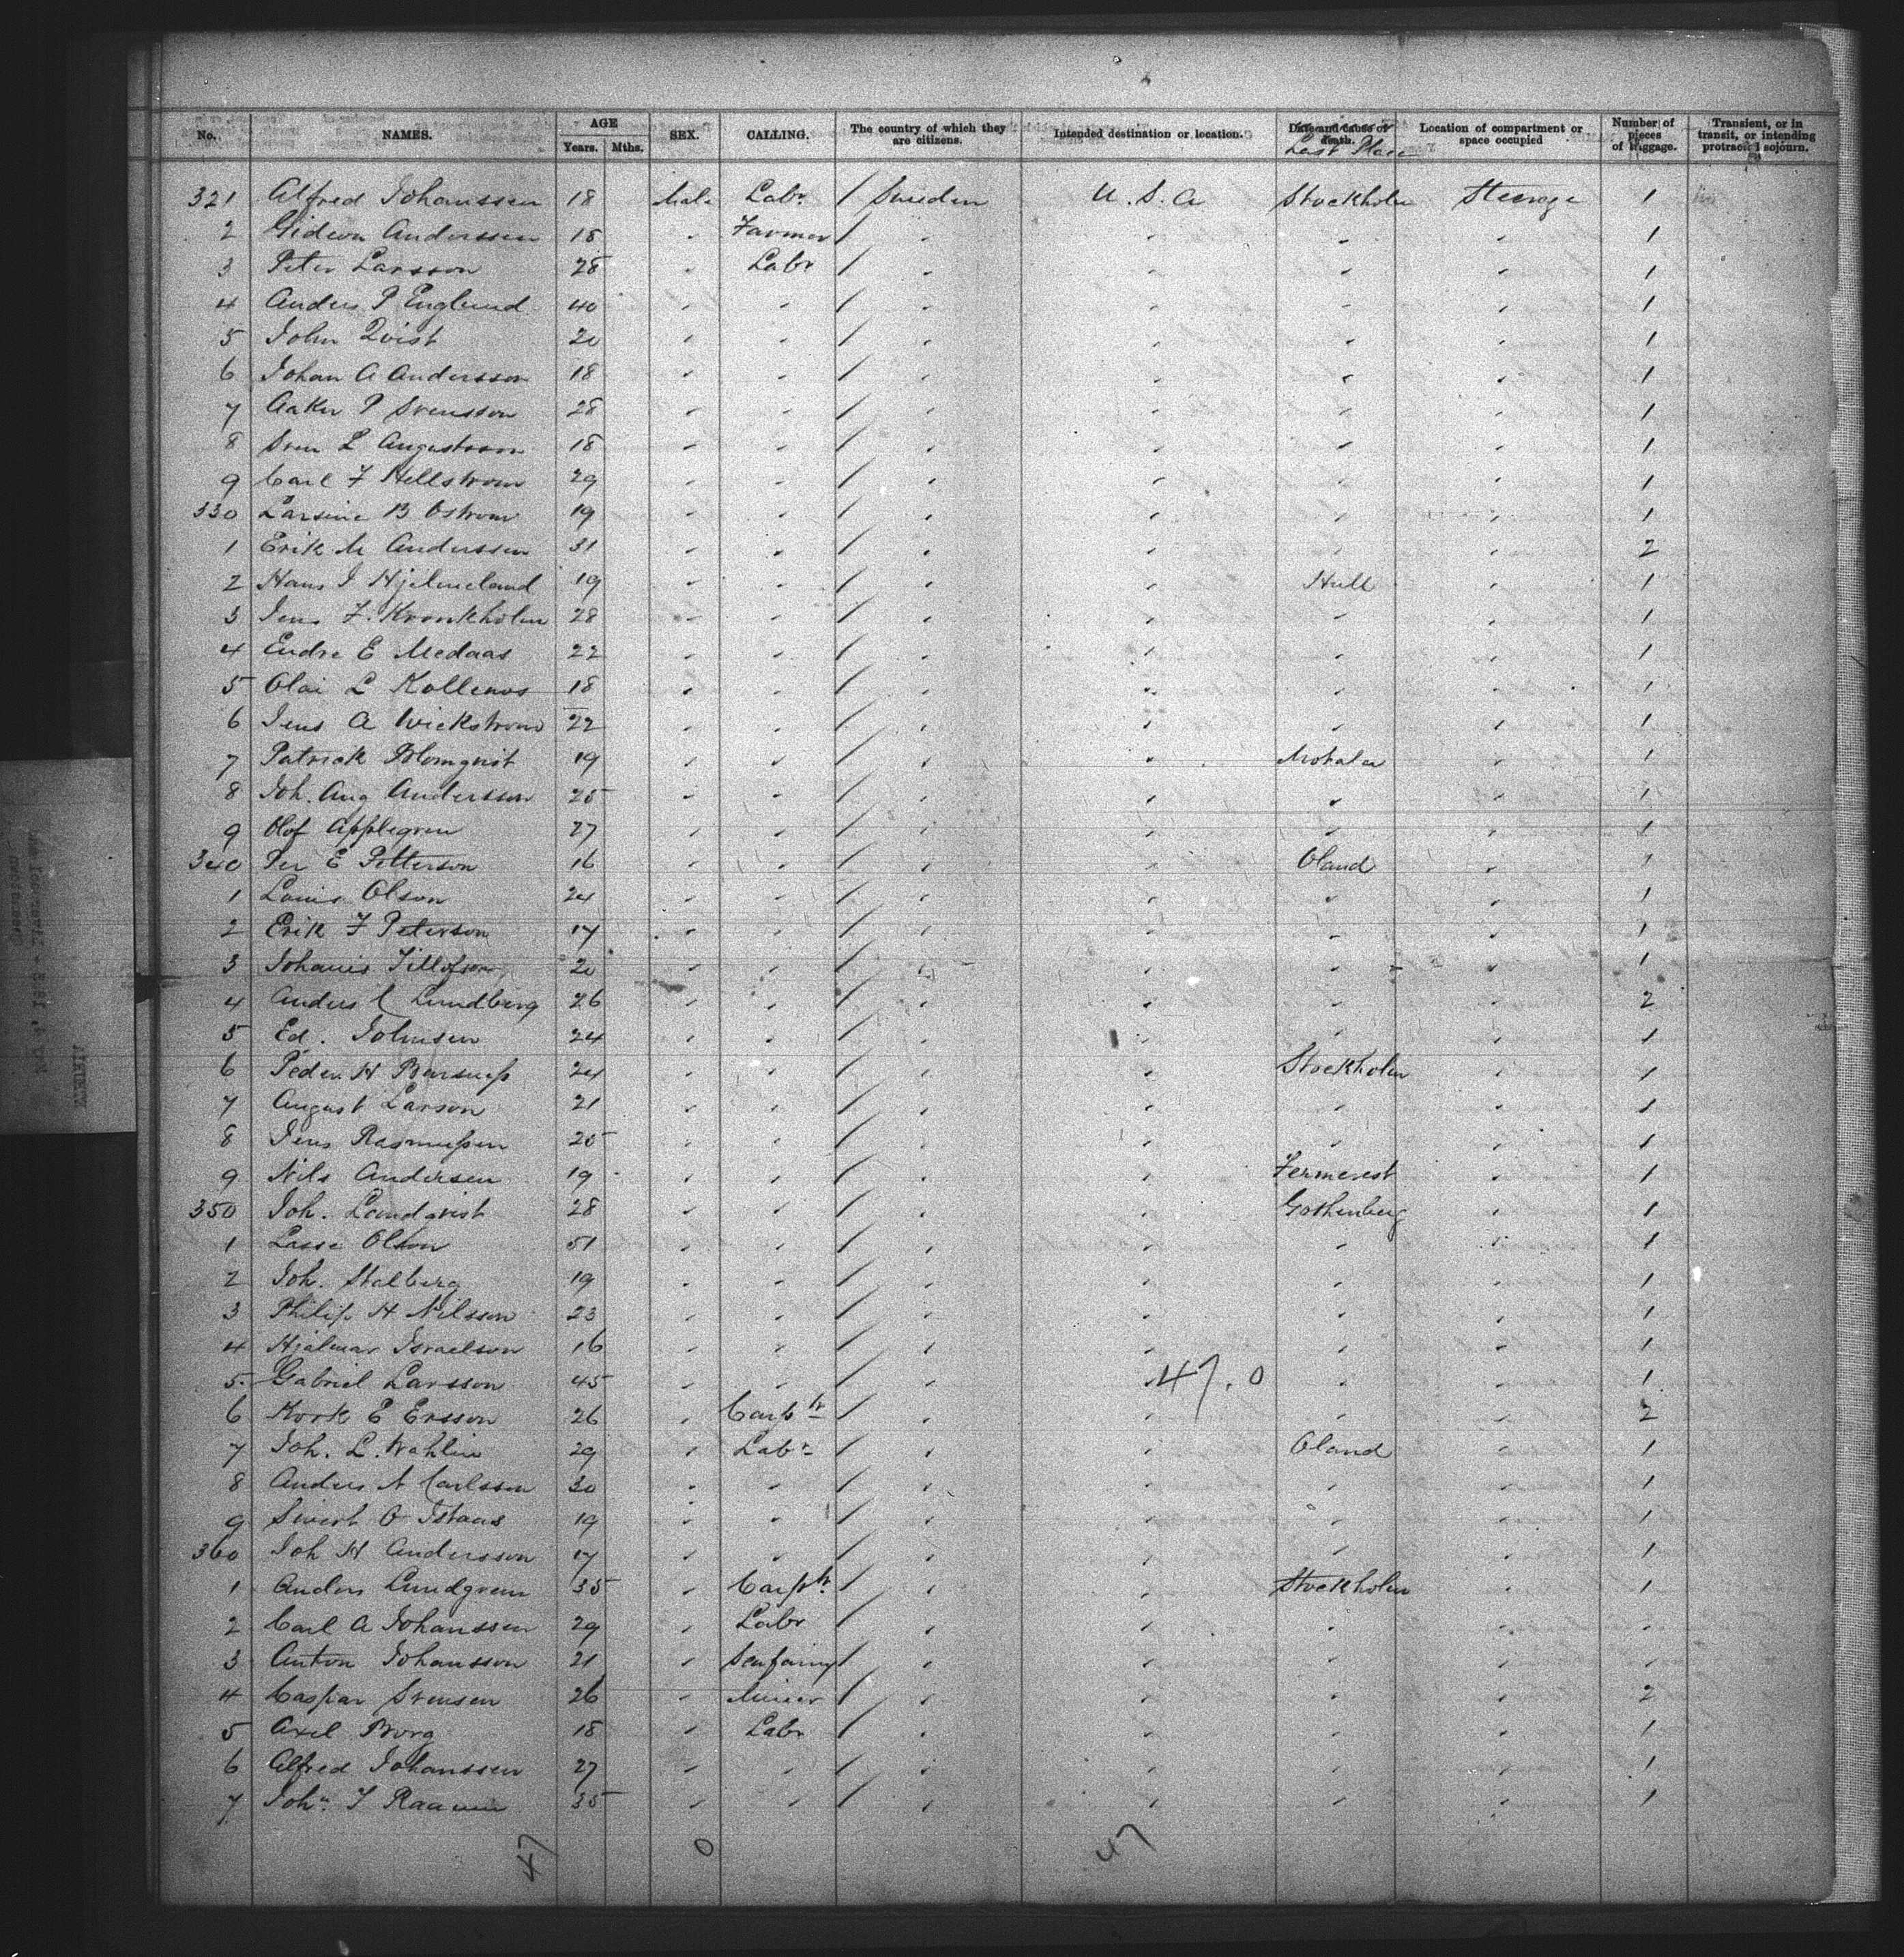 No. NAMES. AGE Years. Mths. SEX. CALLING. The country of which they are citizens. Intended destination or location. Date and cause of death. Last Place Location of compartment or space occupied Number of pieces of luggage. Transient, or in transit, or intending protracted sojourn.
321 Alfred Johanssen 18 Male Labr / Sweden U. S. A Stockholm Steerage 1
2 Gideon Anderssen 18 " Farmer / " " " " 1
3 Peter Larsson 28 " Labr / " " " " 1
4 Anders P Englund 40 " " / " " " " 1
5 John Qvist 20 " " / " " " " 1
6 Johan A Andersson 18 " " / " " " " 1
7 Aaker P Svensson 28 " " / " " " " 1
8 Sven L Augustsson 18 " " / " " " " 1
9 Carl F Hellstrom 29 " " / " " " " 1
330 Larsine B Ostrom 19 " " / " " " " 1
1 Erik M Anderssen 31 " " / " " " " 2
2 Hans J Hjelmeland 19 " " / " " Hull " 1
3 Jens F. Kronkholm 28 " " / " " " " 1
4 Endre E Medaas 22 " " / " " " " 1
5 Olai L Kollenos 18 " " / " " " " 1
6 Jens A Wickstrom 22 " " / " " " " 1
7 Patrick Blomqvist 19 " " / " " Motala " 1
8 Joh. Aug Andersson 25 " " / " " " " 1
9 Olof Applegren 27 " " / " " " " 1
340 Per E Petterson 16 " " / " " Oland " 1
1 Louis Olson 24 " " / " " " " 1
2 Erik F Peterson 17 " " / " " " " 1
3 Johanis Tillofson 20 " " / " " " " 1
4 Anders C Lundberg 26 " " / " " " " 2
5 Ed. Johnsen 24 " " / " " " " 1
6 Peder H 24 " " / " " Stockholm " 1
7 August Larson 21 " " / " " " " 1
8 Jens Rasmussen 25 " " / " " " " 1
9 Nils Andersen 19 " " / " " " 1
350 Joh. Landqvist 28 " " / " " Gothenberg " 1
1 Lasse Olson 51 " " / " " " " 1
2 Joh. Stalberg 19 " " / " " " " 1
3 Philip H Nilsson 23 " " / " " " " 1
4 Hjalmar Israelson 16 " " / " " " " 1
5 Gabriel Larsson 45 " " / " " 47. 0 " " 1
6 E Ersson 26 " Carptr / " " " " 2
7 Joh. L. Wahlin 29 " Labr / " " Oland " 1
8 Anders A Carlsson 30 " " / " " " " 1
9 Sivert O Istaas 19 " " / " " " " 1
360 Joh H Andersson 17 " " / " " " " 1
1 Anders Lundgren 35 " Carptr. / " " Stockholm " 1
2 Carl A Johanssen 29 " Labr / " " " " "
3 Anton Johansson 21 " Seafaring / " " " " "
4 Caspar Svensen 26 " Miner / " " " " 2
5 Axel Borg 18 " Labr / " " " " 1
6 Alfred Johanssen 27 " " / " " " " 1
7 John J 35 " " / " " " " 1
47 0 47